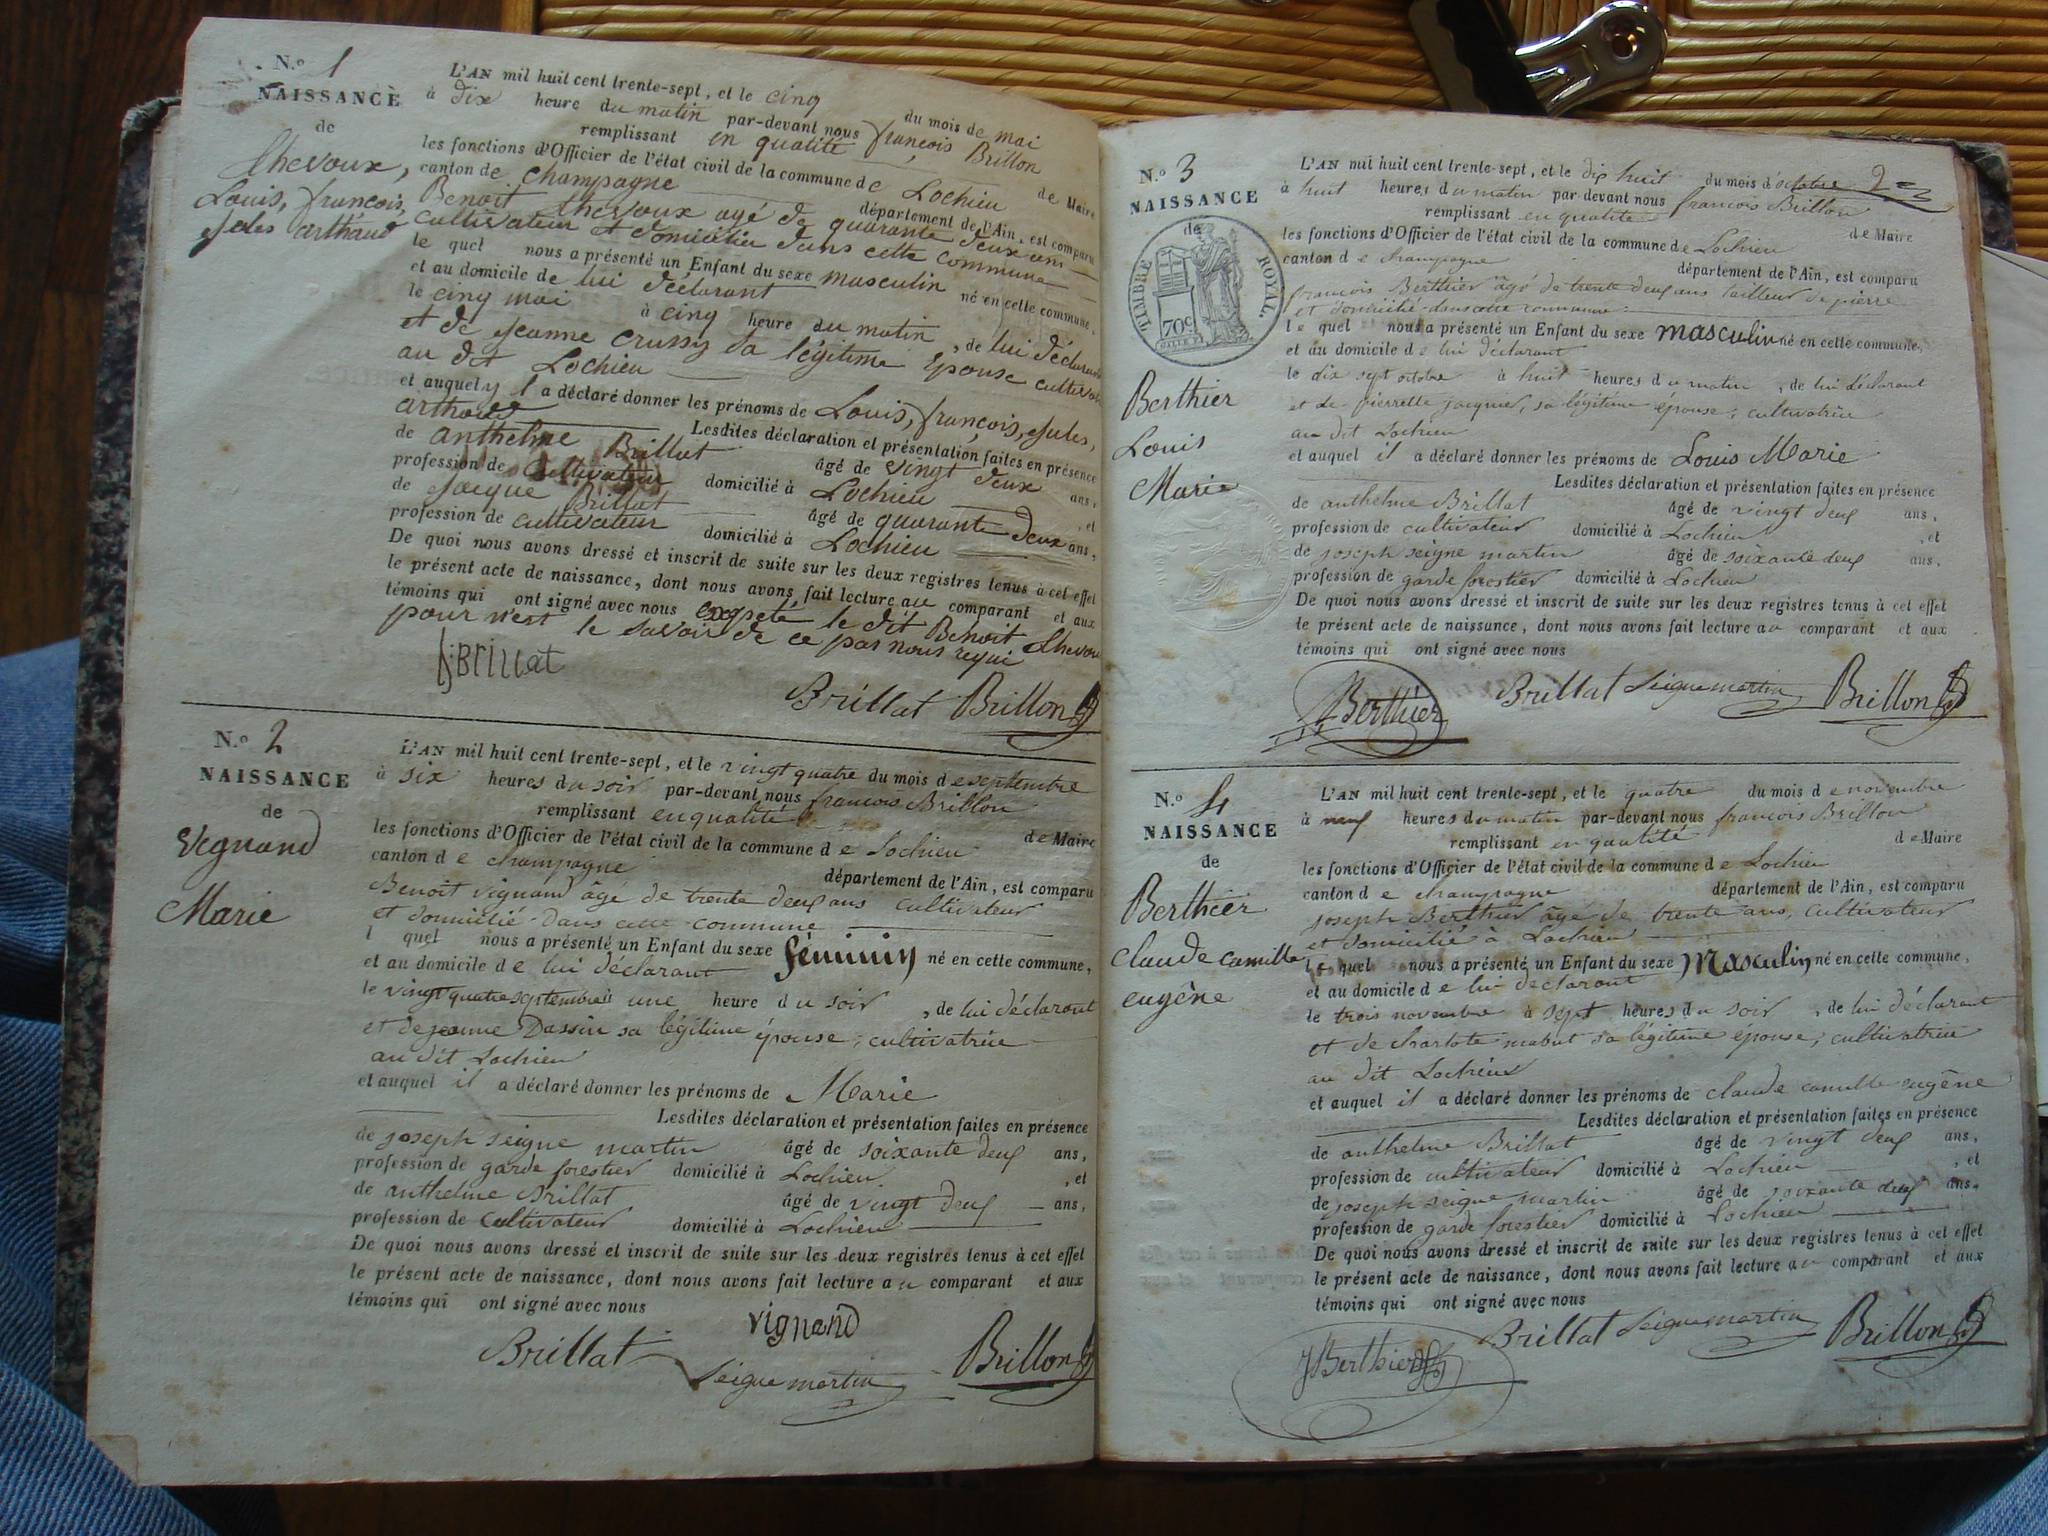 N.o 1
NAISSANCE
de
Chevoux,
Louis, françois,
Jules arthaud
L'AN mil huit cent trente-sept, et le cinq du mois de mai
à dix heure du matin par-devant nous françois Brillon
remplissant en qualité de Maire
les fonctions d'Officier de l'état civil de la commune de Lochieu
canton de champagne département de l'Ain, est comparu
Benoit Chevoux agé de quarante deux ans
cultivateur et domicilié dans cette commune
le quel nous a présenté un Enfant du sexe masculin né en cette commune,
et au domicile de lui déclarant
le cinq mai à cinq heure du matin, de lui déclarant
et de Jeanne Crussy sa légitime Epouse
au dit Lochieu
et auquel il a déclaré donner les prénoms de Louis, françois, Jules,
arthaud Lesdites déclaration et présentation faites en présence
de anthelme Brillat âgé de vingt deux ans,
profession de cultivateur domicilié à Lochieu , et
de Jacque Brillat âgé de quarante deux ans,
profession de cultivateur domicilié à Lochieu
De quoi nous avons dressé et inscrit de suite sur les deux registres tenus à cet effet
le présent acte de naissance, dont nous avons fait lecture au comparant et aux
témoins qui ont signé avec nous le dit Benoit
pour n'est le savoir de ce par nous requi
Brillat
Brillat Brillon
N.o 2
NAISSANCE
de
Vignand
Marie
L'AN mil huit cent trente-sept, et le vingt quatre du mois de septembre
à six heures du soir par-devant nous francois Brillon
remplissant en qualité de Maire
les fonctions d'Officier de l'état civil de la commune de Lochieu
canton de champagne département de l'Ain, est comparu
Benoit vignand âgé de trente deux ans cultivateur
et domicilié dans cette commune
l quel nous a présenté un Enfant du sexe féminin né en cette commune,
et au domicile de lui déclarant
le vingt quatre septembre à une heure du soir , de lui déclarant
et de jeanne Dassin sa légitime épouse, cultivatrice
au dit Lochieu
et auquel il a déclaré donner les prénoms de Marie
Lesdites déclaration et présentation faites en présence
de joseph seigne martin âgé de soixante deux ans,
profession de garde forestier domicilié à Lochieu , et
de anthelme Brillat âgé de vingt deux ans,
profession de cultivateur domicilié à Lochieu
De quoi nous avons dressé et inscrit de suite sur les deux registres tenus à cet effet
le présent acte de naissance, dont nous avons fait lecture au comparant et aux
témoins qui ont signé avec nous
vignand
Brillat Seigne martin Brillon
N.o 3
NAISSANCE
de
TIMBRE ROYAL.
70c
Berthier
Louis
Marie
L'AN mil huit cent trente-sept, et le dix huit du mois d'octobre
à huit heures du matin par-devant nous francois Brillon
remplissant en qualité de Maire
les fonctions d'Officier de l'état civil de la commune de Lochieu
canton de champagne département de l'Ain, est comparu
francois Berthier âgé de trente deux ans tailleur de pierre
et domicilié dans cette commune
le quel nous a présenté un Enfant du sexe masculin né en cette commune,
et au domicile de lui déclarant
le dix sept octobre à huit heures du matin , de lui déclarant
et de pierrette jacquier, sa légitime épouse, cultivatrice
au dit Lochieu
et auquel il a déclaré donner les prénoms de Louis Marie
Lesdites déclaration et présentation faites en présence
de anthelme Brillat âgé de vingt deux ans,
profession de cultivateur domicilié à Lochieu , et
de joseph seigne martin âgé de soixante deux ans,
profession de garde forestier domicilié à Lochieu
De quoi nous avons dressé et inscrit de suite sur les deux registres tenus à cet effet
le présent acte de naissance, dont nous avons fait lecture au comparant et aux
témoins qui ont signé avec nous
Berthier Brillat Seigne martin Brillon
N.o 4
NAISSANCE
de
Berthier
claude camille
eugêne
L'AN mil huit cent trente-sept, et le quatre du mois de novembre
à neuf heures du matin par-devant nous francois Brillon
remplissant en qualité de Maire
les fonctions d'Officier de l'état civil de la commune de Lochieu
canton de champagne département de l'Ain, est comparu
joseph Berthier âgé de trente ans, cultivateur
et domicilié à Lochieu
le quel nous a présenté un Enfant du sexe Masculin né en cette commune,
et au domicile de lui déclarant
le trois novembre à sept heures du soir , de lui déclarant
et de charlote mabut sa légitime épouse, cultivatrice
au dit Lochieu
et auquel il a déclaré donner les prénoms de claude camille eugêne
Lesdites déclaration et présentation faites en présence
de anthelme Brillat âgé de vingt deux ans,
profession de cultivateur domicilié à Lochieu , et
de joseph seigne martin âgé de soixante deux ans.
profession de garde forestier domicilié à Lochieu
De quoi nous avons dressé et inscrit de suite sur les deux registres tenus à cet effet
le présent acte de naissance, dont nous avons fait lecture au comparant et aux
témoins qui ont signé avec nous
JBerthier Brillat Seigne martin Brillon